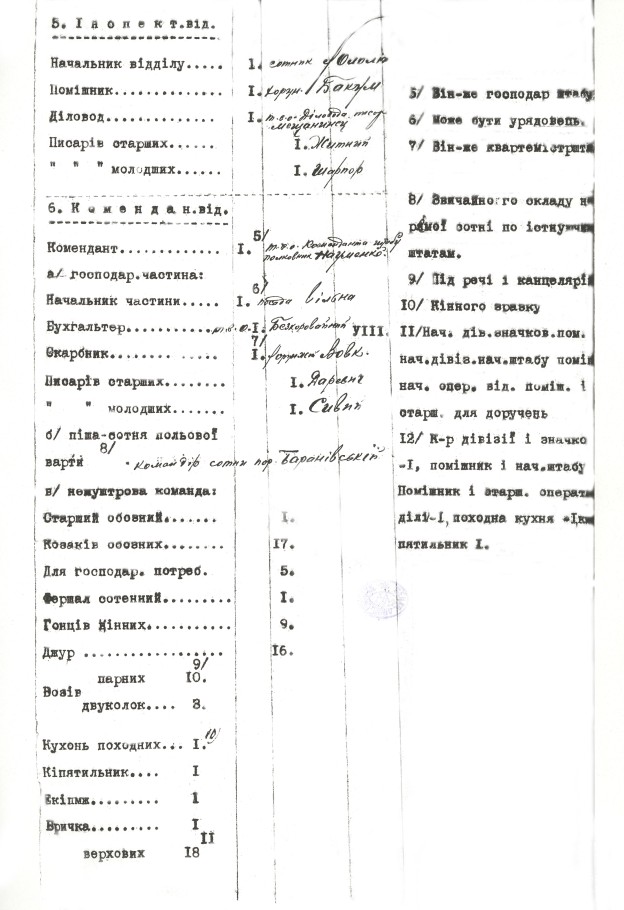 5. І н о п е к т. від.
Начальник відділу..... І. сотник
Помішник............ І. хорун. Бакум
Діловод............. І. т.в.о. Діловода писар Мещанинец
Писарів старших..... І. Житний
" " " молодших...... І. Шарпор
6. К о м е н д а н. від.
5/
Комендант............ І. т.ч.о. Коменданта штабу полковник Науменко.
а/ господар.частина:
6/
Начальник частини..... І. посада вільна
Бухгальтер. т.в.о. І. Безкоровайний VІІІ.
7/
Скарбник.... ....... І. Вовк.
Писарів старших....... І. Даревич
" " молодших....... І. Сивий
б/ піша-сотня польової
8/
варти командір сотни пор. Барановській
в/ немуштрова команда:
Старший обозний....... І.
Козаків обозних........ 17.
Для господар. потреб. 5.
Фершал сотенний......... І.
Гонців Кінних........... 9.
Джур .................. 16.
9/
парних 10.
Возів
двуколок.... 3.
Кухонь походних... І. 10/
Кіпятильник.... І
Екіпаж......... 1
Бричка......... І
ІІ
верхових 18
5/ Він-же господар штабу
6/ Може бути урядовець.
7/ Він-же квартемістрит
8/ Звичайного складу н
рмої сотні по існуючим
штатам.
9/ Під речі і канцелярі
10/ Кінного зразку
ІІ/Нач. дів.значков.пом.
нач.дівіз.нач.штабу помі
нач. опер. від. поміш. і
старш. для доручень
12/ К-р дівізії і значко
-І, помішник і нач.штабу
Помішник і старш. операт
ділі-І, походна кухня -Ікі
пятильник І.